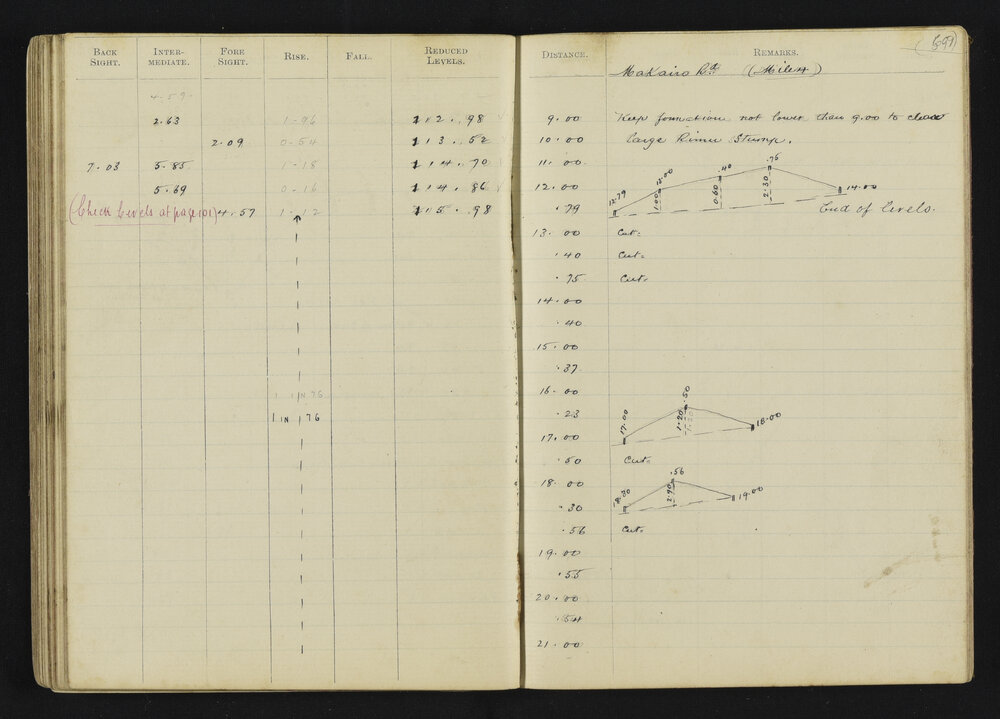 (591)
BACK SIGHT. INTER-MEDIATE. FORE SIGHT. RISE. FALL. REDUCED LEVELS. DISTANCE. REMARKS.
Makairo Rd (Miles)
4-59
2.63 1-96 112.98 9.00 Keep formation not lower than 9.00 to clear
2.09 0-54 113.52 10.00 large Rimu Stump.
7.03 5.85 1-18 114.70 11.00
5.69 0-16 114.86 12.00
(Check levels at page 101) 4.57 1-12 115.98 .79
12.79 13.00 1.00 .40 0.60 .75 2.30 14.00
End of levels.
13.00 Cut-
.40 Cut-
.75 Cut-
14.00
.40
15.00
.37
16.00
1 IN 76
1 IN 76 .23
17.00 .50 1.20 1.20 18.00
17.00
.50 Cut-
18.00
18.30 .56 2.90 19.00
.30
.56 Cut-
19.00
.55
20.00
.54
21.00